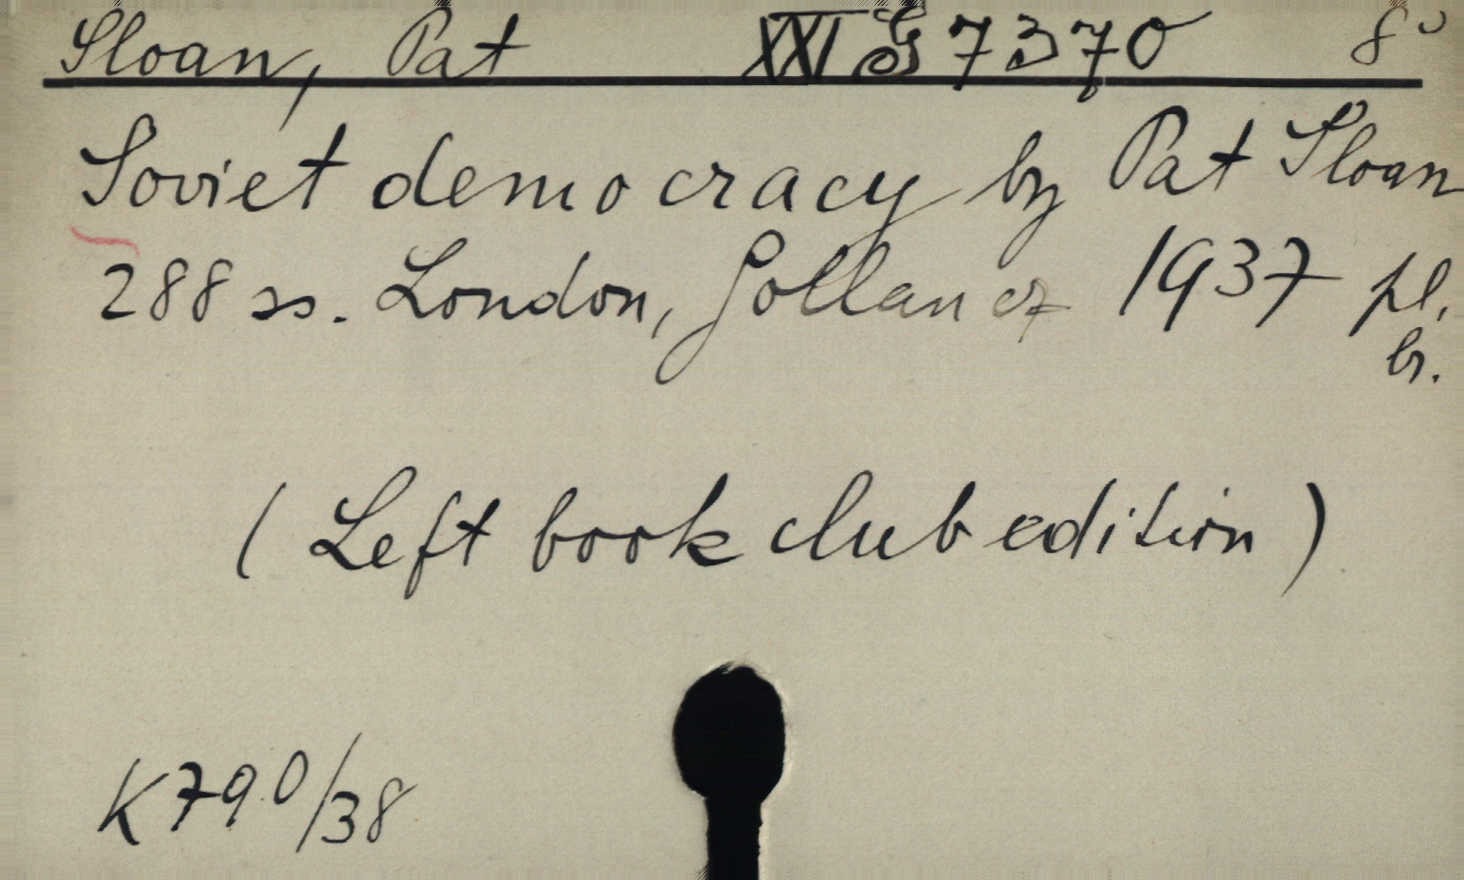 Sloan, Pat XXI G 7370 8°
Soviet democracy by Pat Sloan
288 ss. London, Gollancz 1937 pl.
br.
(Left book club edition)
K790/38